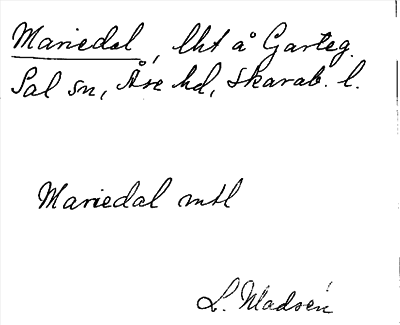 Mariedal, lht å Garteg.
Sal sn, Åse hd, Skarab. l.
Mariedal mtl
L. Madsén